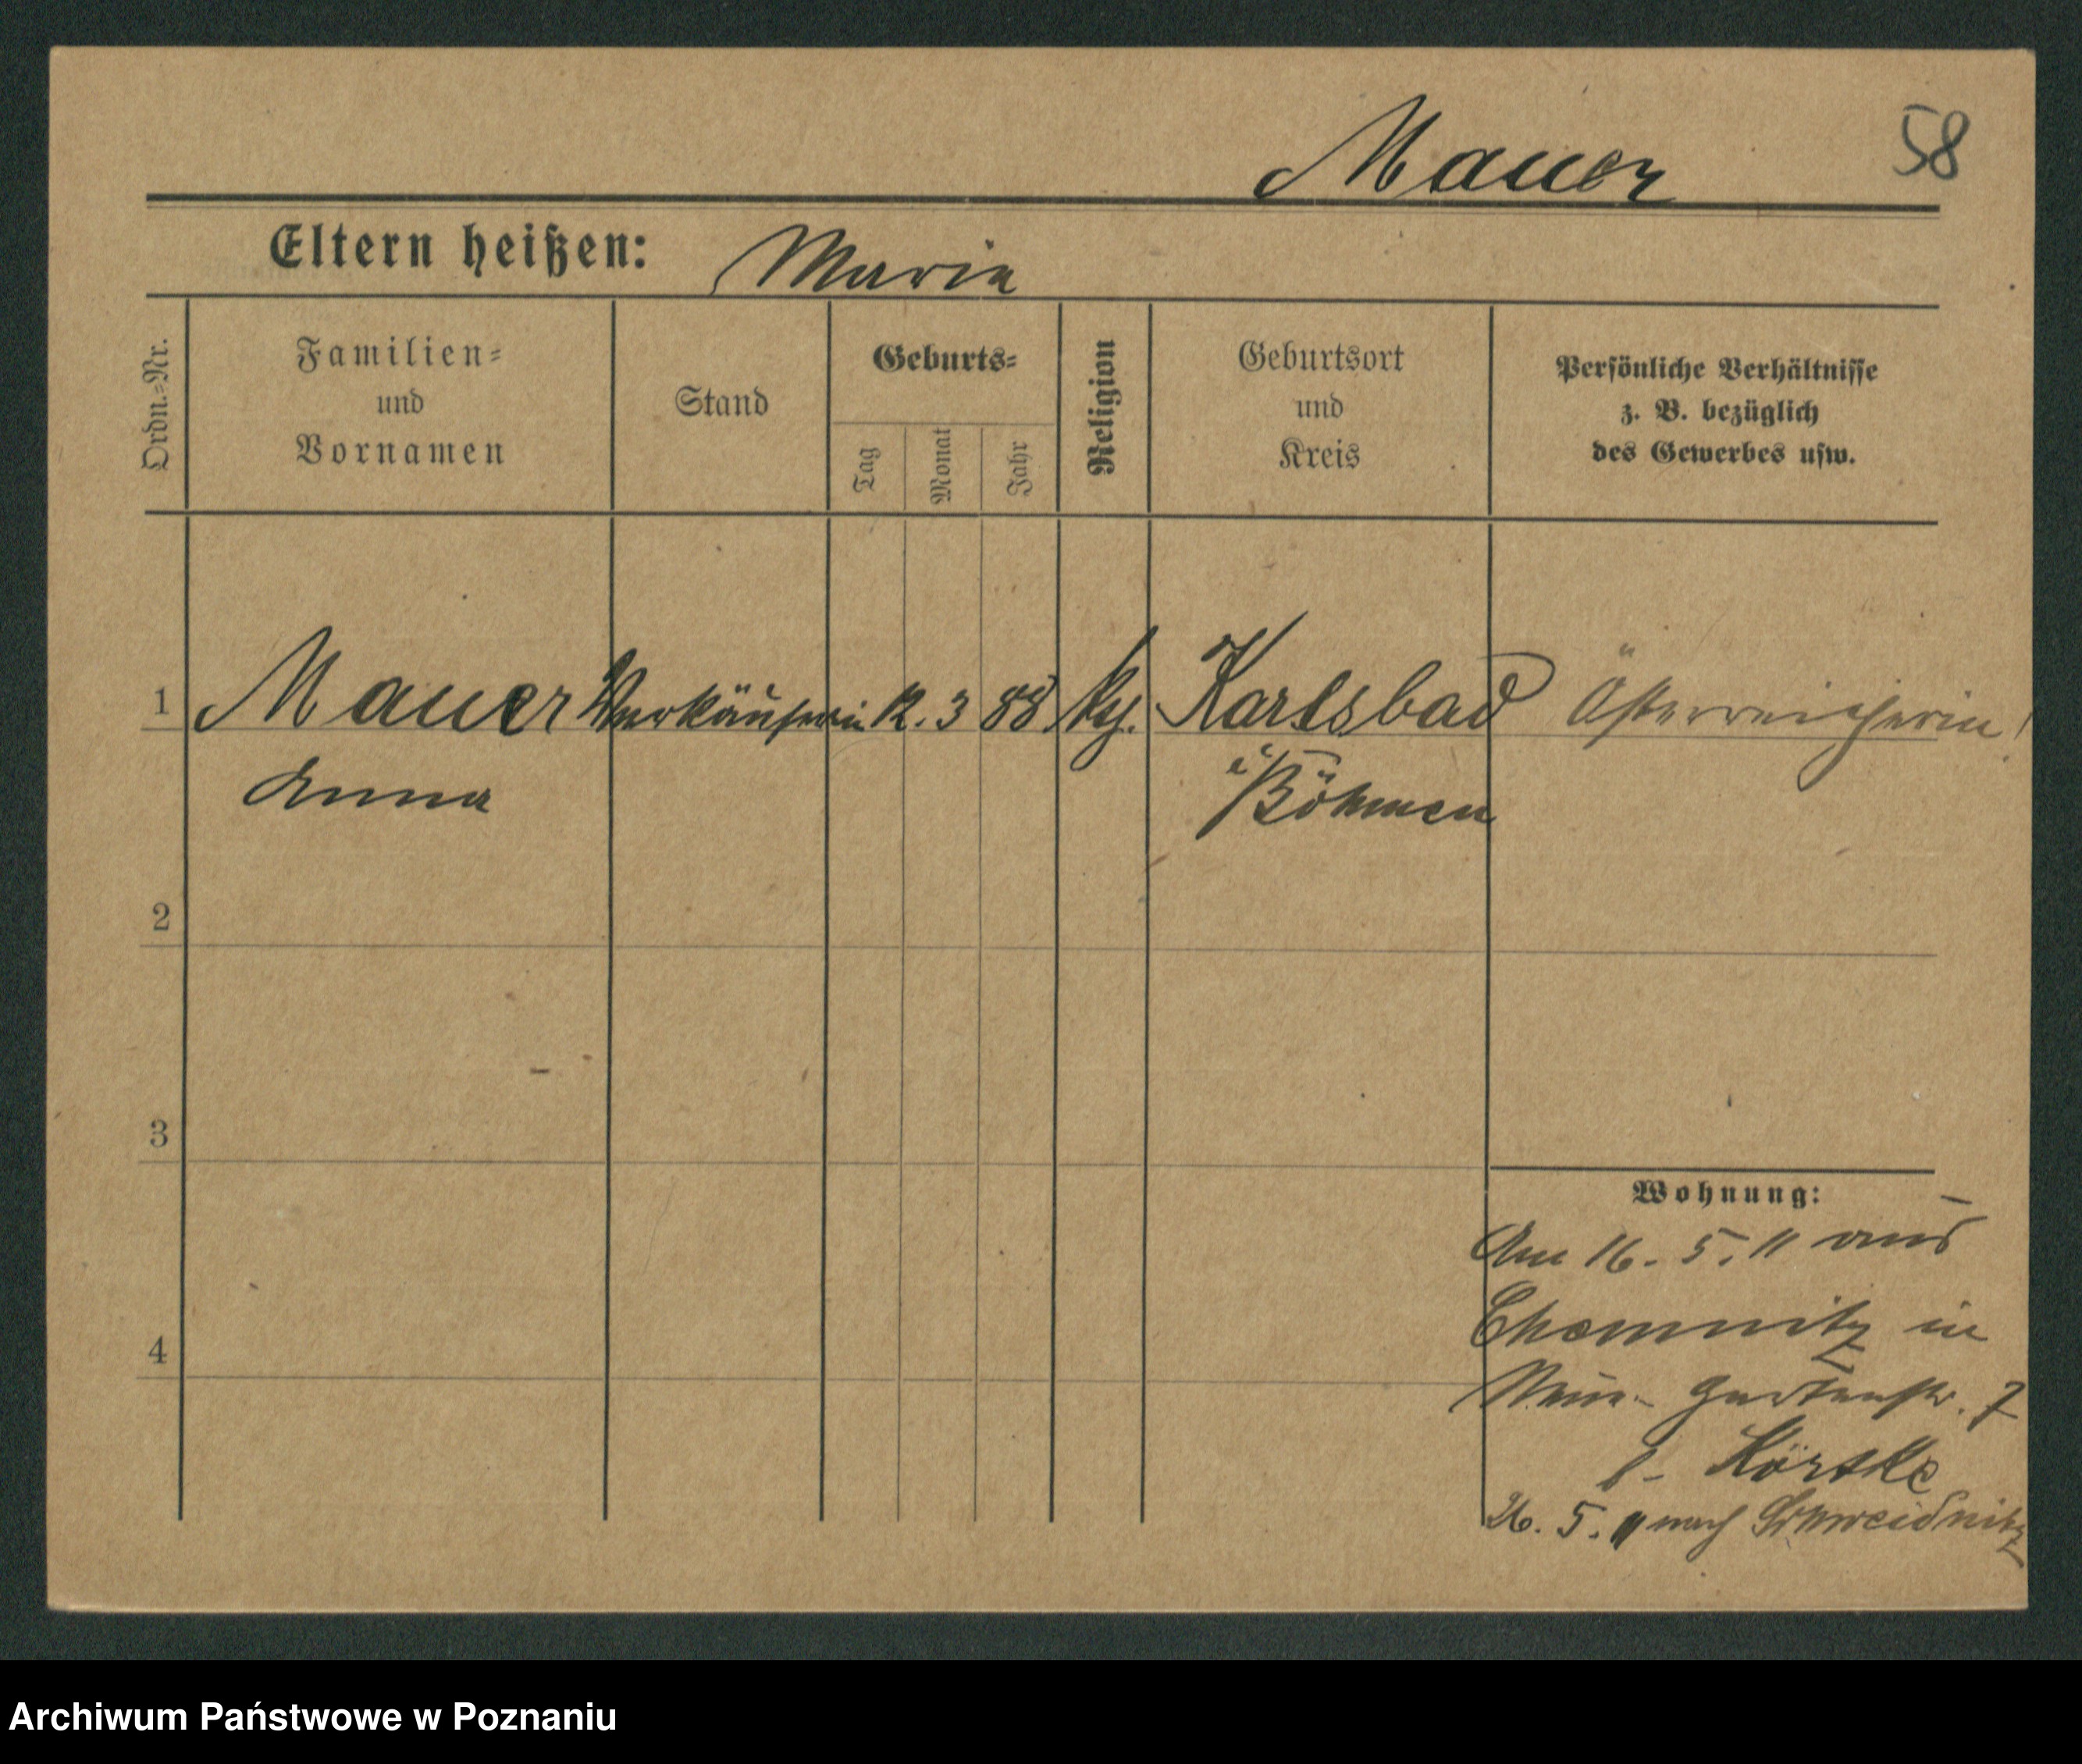 Mauer 58
Eltern heißen: Maria
Ordn.-Nr.
Familien-
und
Vornamen
Stand
Geburts-
Tag
Monat
Jahr
Religion
Geburtsort
und
Kreis
Persönliche Verhältnisse
z. B. bezüglich
des Gewerbes usw.
1 Mauer Verkäuferin 12. 3 88 Karlsbad Österreicherin!
Anna i/Böhmen
2
3
4
Wohnung:
Am 16. 5. 11 aus
Chemnitz in
Gartenstr. 7
26. 5. 11 nach Schweidnitz
Archiwum Państwowe w Poznaniu